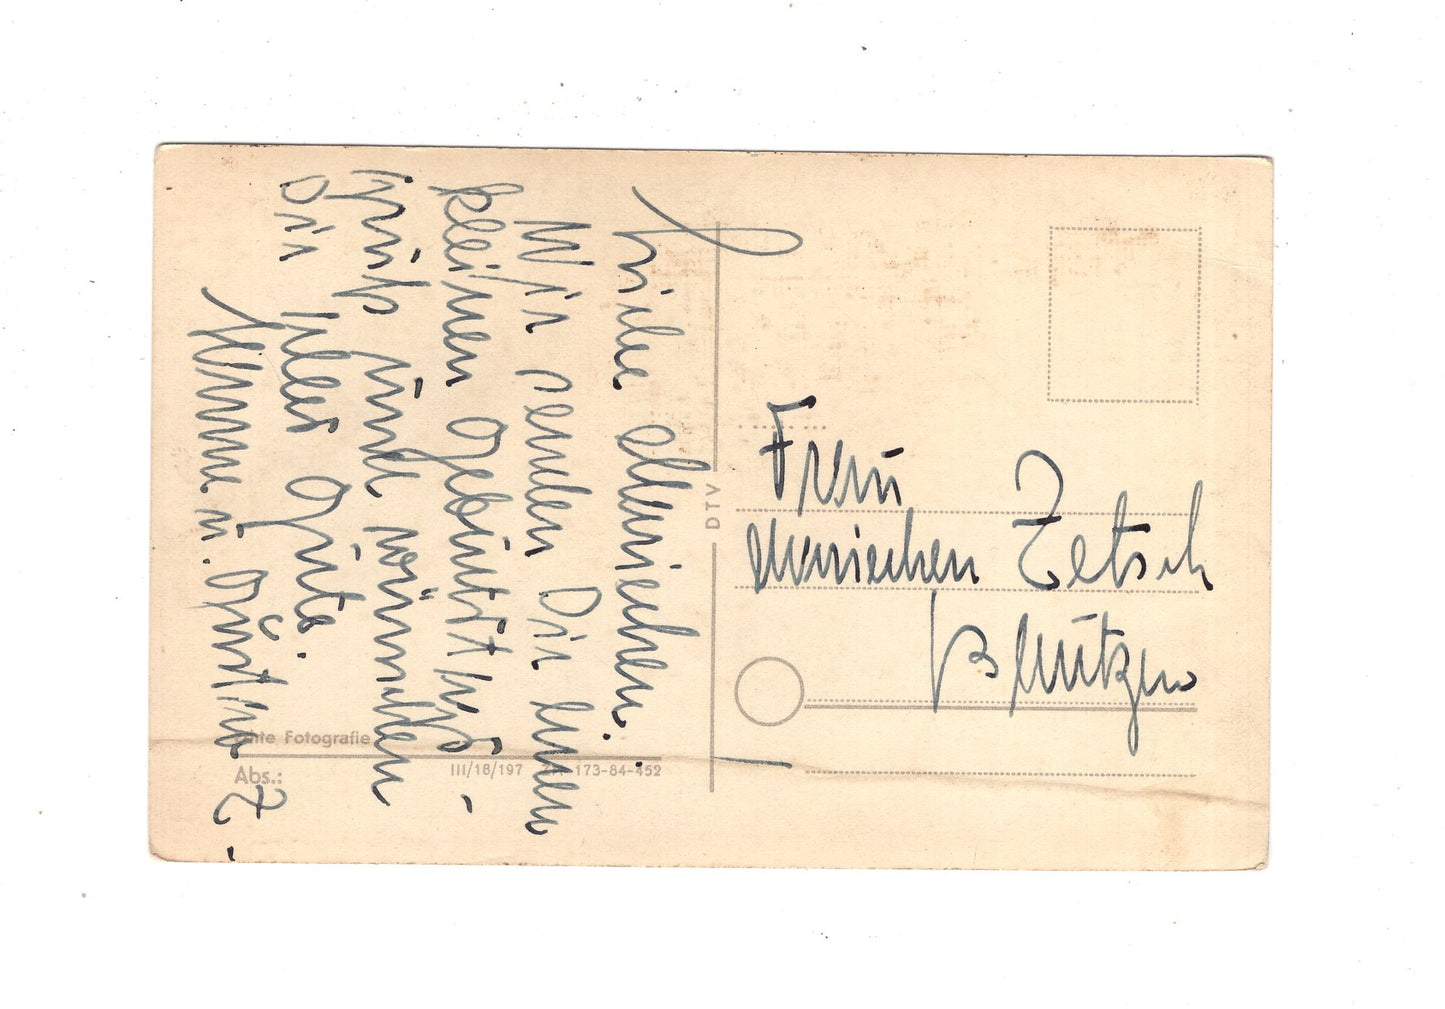 Liebe Mariechen!
Wir senden Dir einen
kleinen Geburtstags-
gruß und wünschen
Dir alles Gute.
u. Günther Z.
Frau
Mariechen Zetsch
DTV
Echte Fotografie
Abs.:
III/18/197 173-84-452